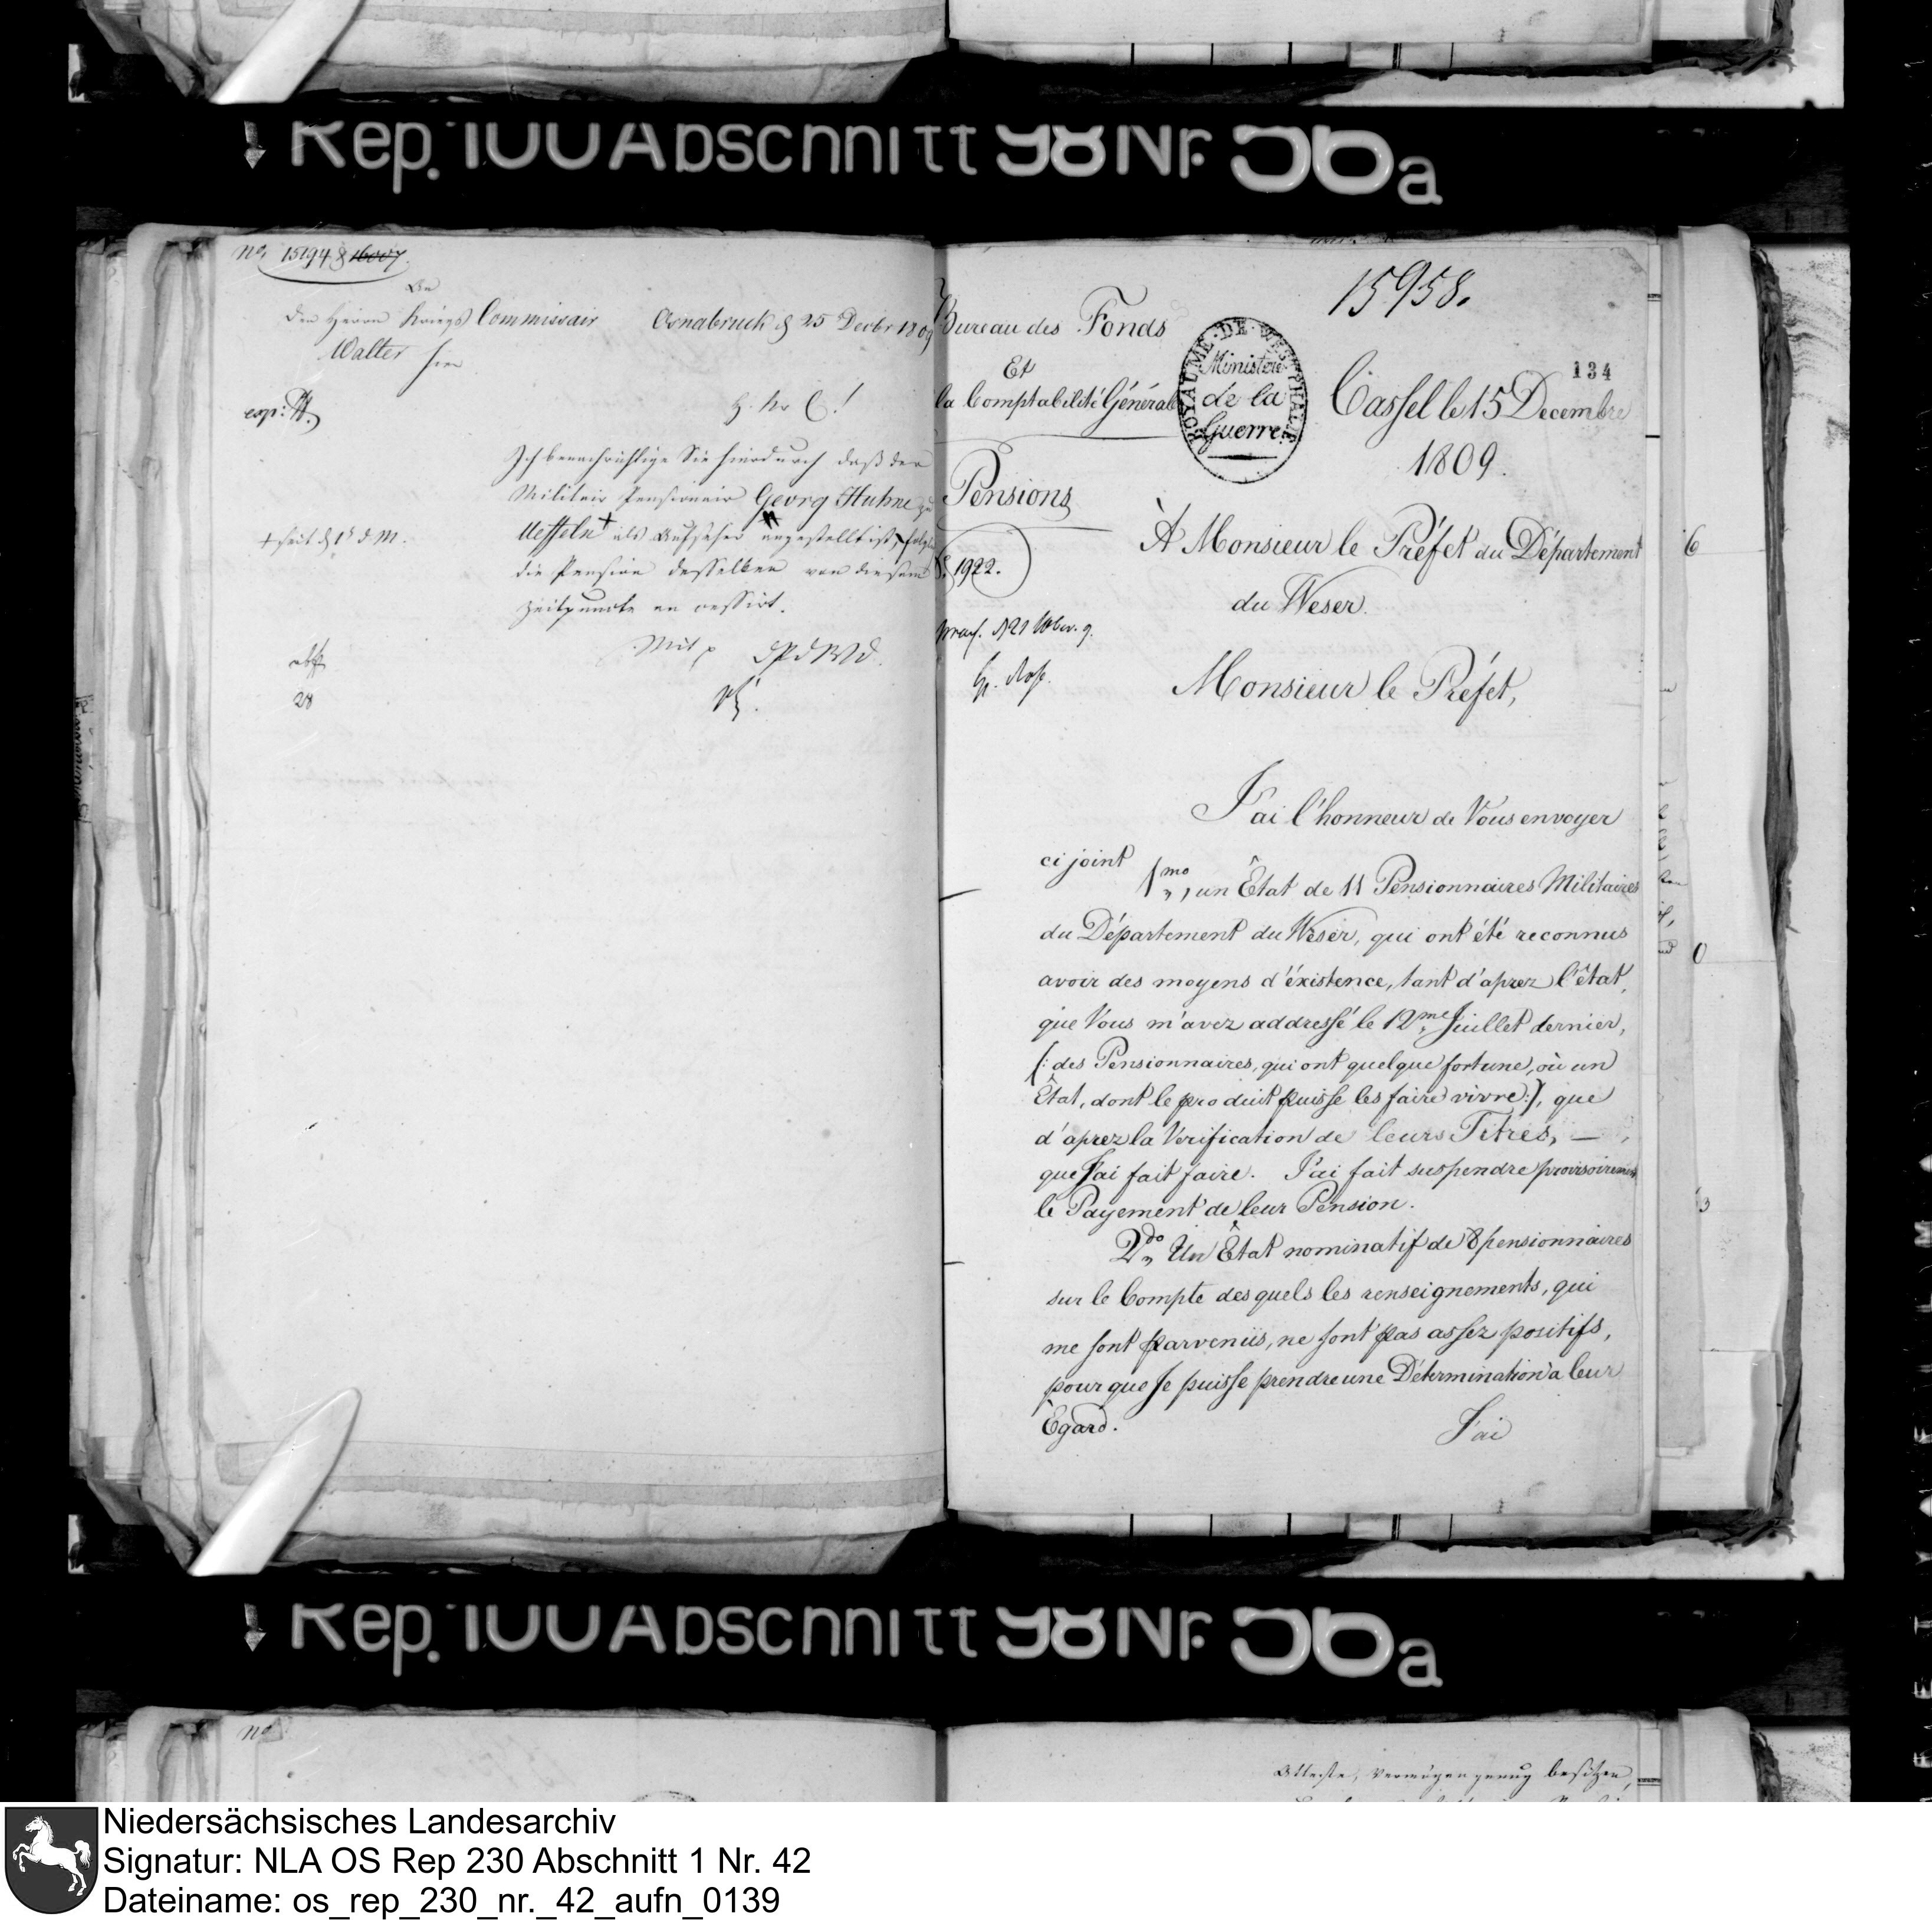 Rep. 100 Abschnitt 98 Nr. 56a
No. 15194 & 16007.
An
den Herrn Kriegs Commissair
Walter hier
Osnabruck d 25 Decbr 1809
exp:
H. Kr C.!
Ich benachrichtige Sie hierdurch daß der
Militair Pensionair Georg Huhne zu
Ueffeln + als Aufseher angestellt ist, folglich
+ seit d 1t d. M.
die Pension desselben von diesem
Zeitpuncte an cessirt.
Mit p d P d W D.
abg
28
Bureau des Fonds
Et
la Comptabilité Générale
Pensions
1922.
praes. d 21 Xbr. 9.
15958.
ROYAUME · DE · WESTPHALIE
Ministère
de la
Guerre
134
Cassel le 15 Decembre
1809.
À Monsieur le Préfet du Département
du Weser.
Monsieur le Préfet,
J'ai l'honneur de Vous envoyer
ci joint
1mo, un État de 11 Pensionnaires Militaires
du Département du Weser, qui ont été reconnus
avoir des moyens d'éxistence, tant d'aprez l'état,
que Vous m'avez addressé le 12me Juillet dernier,
(: des Pensionnaires, qui ont quelque fortune, où un
État, dont le produit puisse les faire vivre :), que
d'aprez la Verification de leurs Titres, —
que J'ai fait faire. J'ai fait suspendre provisoirement
le Payement de leur Pension.
2do Un État nominatif de 8 pensionnaires
sur le Compte des quels les renseignements, qui
me sont parveniis, ne sont pas assez positifs,
pour que Je puisse prendre une Détermination à leur
Égard.
J'ai
Rep. 100 Abschnitt 98 Nr. 56a
No
Atteste, Vermögen genug besitzen,
Niedersächsisches Landesarchiv
Signatur: NLA OS Rep 230 Abschnitt 1 Nr. 42
Dateiname: os_rep_230_nr._42_aufn_0139